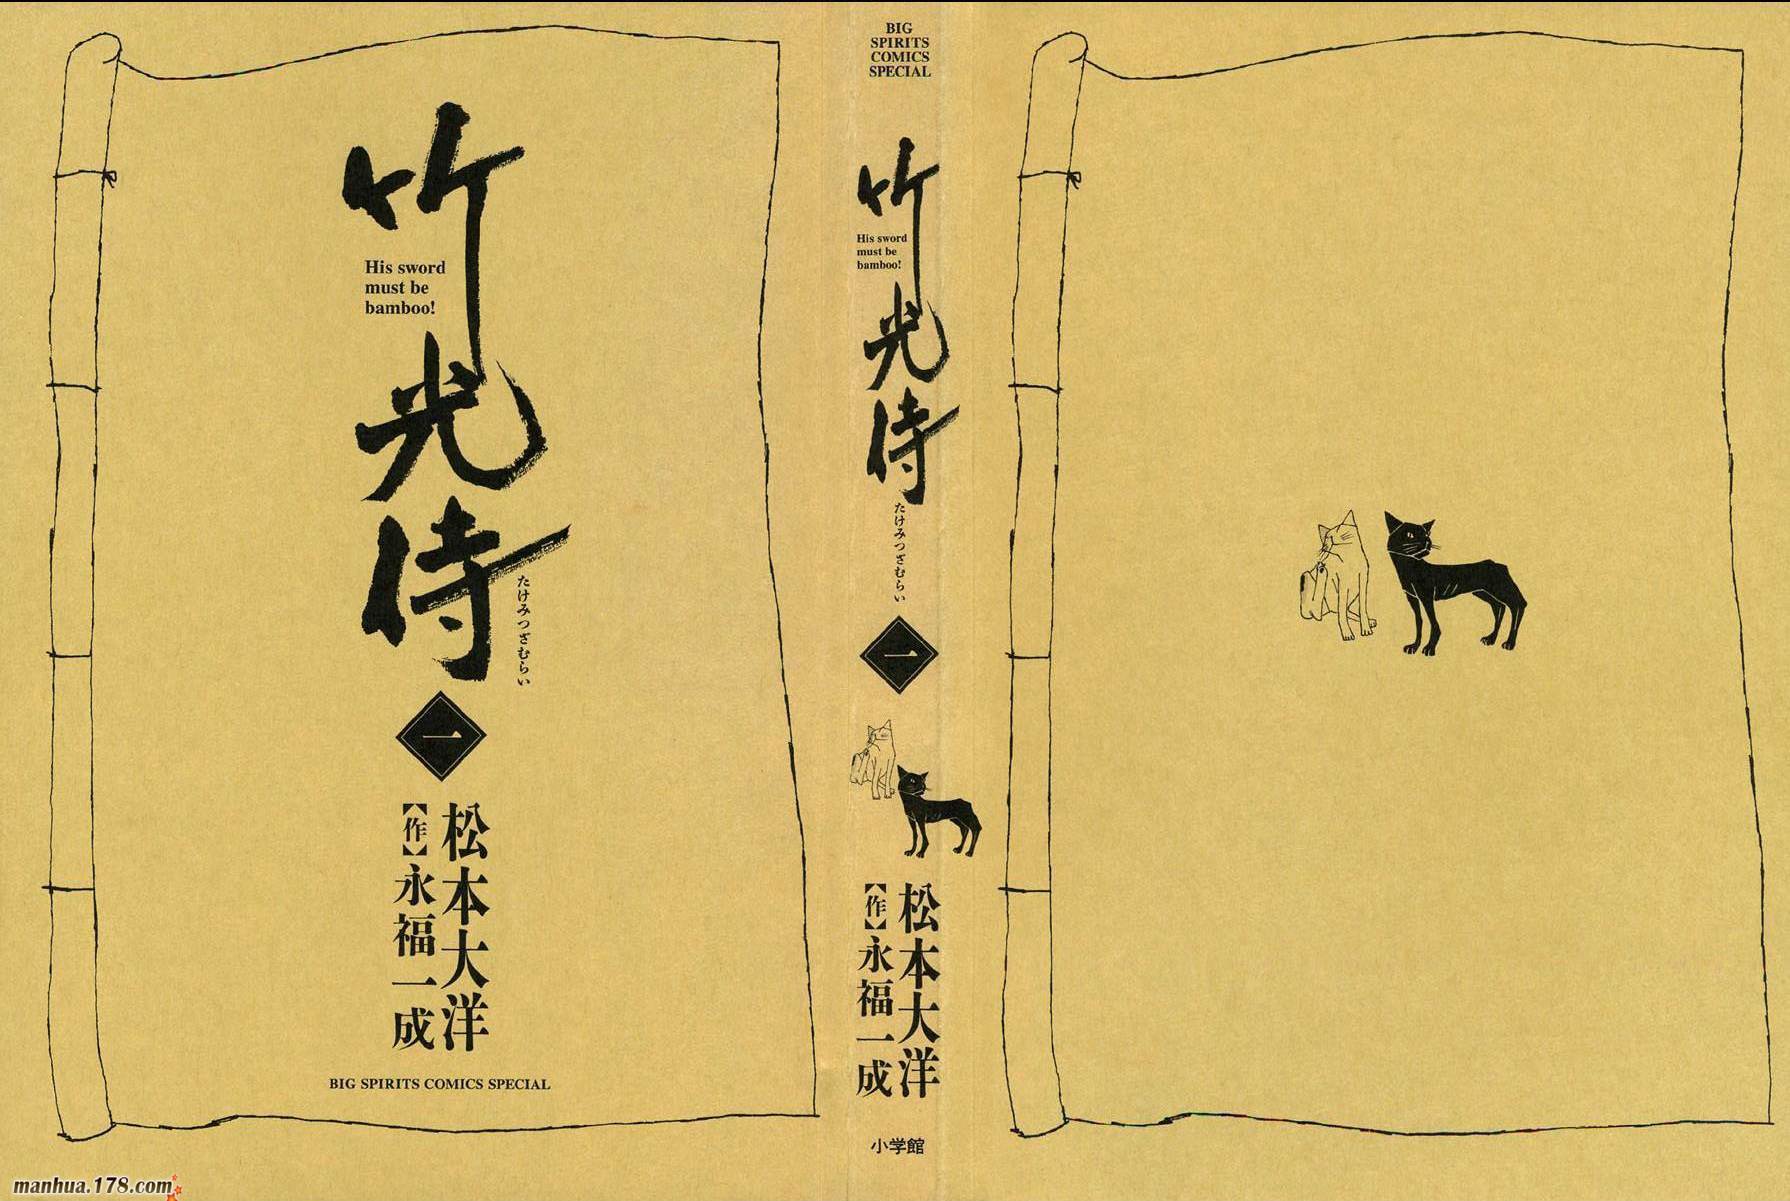 竹光侍
His sword
must be
bamboo!
たけみつざむらい
一
松本大洋
【作】永福一成
BIG SPIRITS COMICS SPECIAL
BIG
SPIRITS
COMICS
SPECIAL
竹光侍
His sword
must be
bamboo!
たけみつざむらい
一
松本大洋
【作】永福一成
小学館
manhua.178.com